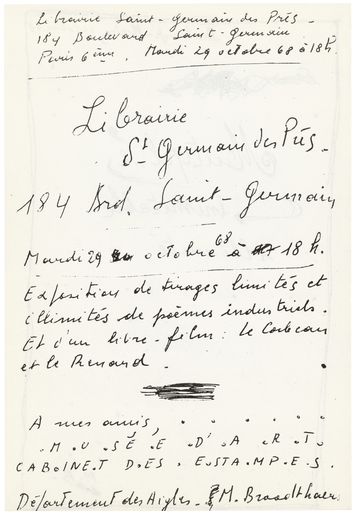 Librairie Saint-Germain des Près -
184 Boulevard Saint-Germain
Paris 6ème, Mardi 29 octobre 68 à 18h
Librairie
St Germain des Prés -
184 Brd. Saint-Germain
Mardi 29 octobre 68 à 18 h.
Exposition de tirages limités et
illimités de poèmes industriels.
Et d'un livre-film : le Corbeau
et le Renard.
A mes amis,
. M . U . S É . E D' . A . R . T .
CABINE.T D.ES . E.STA.MP.E.S.
Département des Aigles - M. Broodthaers